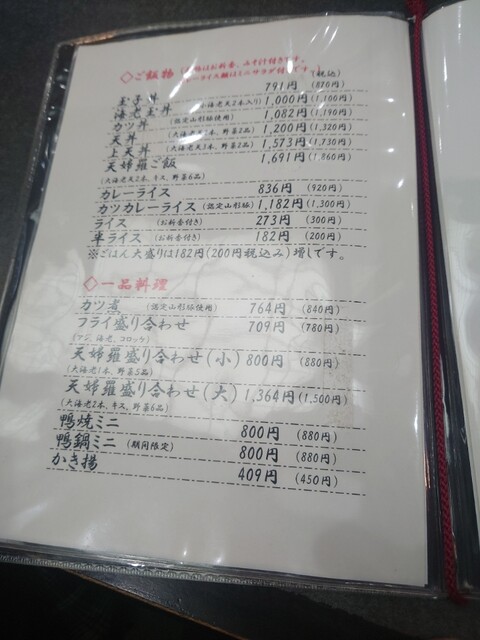 ◇ご飯物 (丼物はお新香、みそ汁付きです。
カレーライス類はミニサラダ付です) (税込)
玉子丼 791円 (870円)
海老玉丼 (小海老天2本入り) 1,000円 (1,100円)
カツ丼 (認定山形豚使用) 1,082円 (1,190円)
天丼 (大海老天1本、野菜2品) 1,200円 (1,320円)
上天丼 (大海老天3本、野菜2品) 1,573円 (1,730円)
天婦羅ご飯 1,691円 (1,860円)
(大海老2本、キス、野菜6品)
カレーライス 836円 (920円)
カツカレーライス (認定山形豚) 1,182円 (1,300円)
ライス (お新香付き) 273円 (300円)
半ライス (お新香付き) 182円 (200円)
※ごはん大盛りは182円(200円税込み)増しです。
◇一品料理
カツ煮 (認定山形豚使用) 764円 (840円)
フライ盛り合わせ 709円 (780円)
(アジ、海老、コロッケ)
天婦羅盛り合わせ(小) 800円 (880円)
(大海老1本、野菜5品)
天婦羅盛り合わせ(大) 1,364円 (1,500円)
(大海老2本、キス、野菜6品)
鴨焼ミニ 800円 (880円)
鴨鍋ミニ (期間限定) 800円 (880円)
かき揚 409円 (450円)